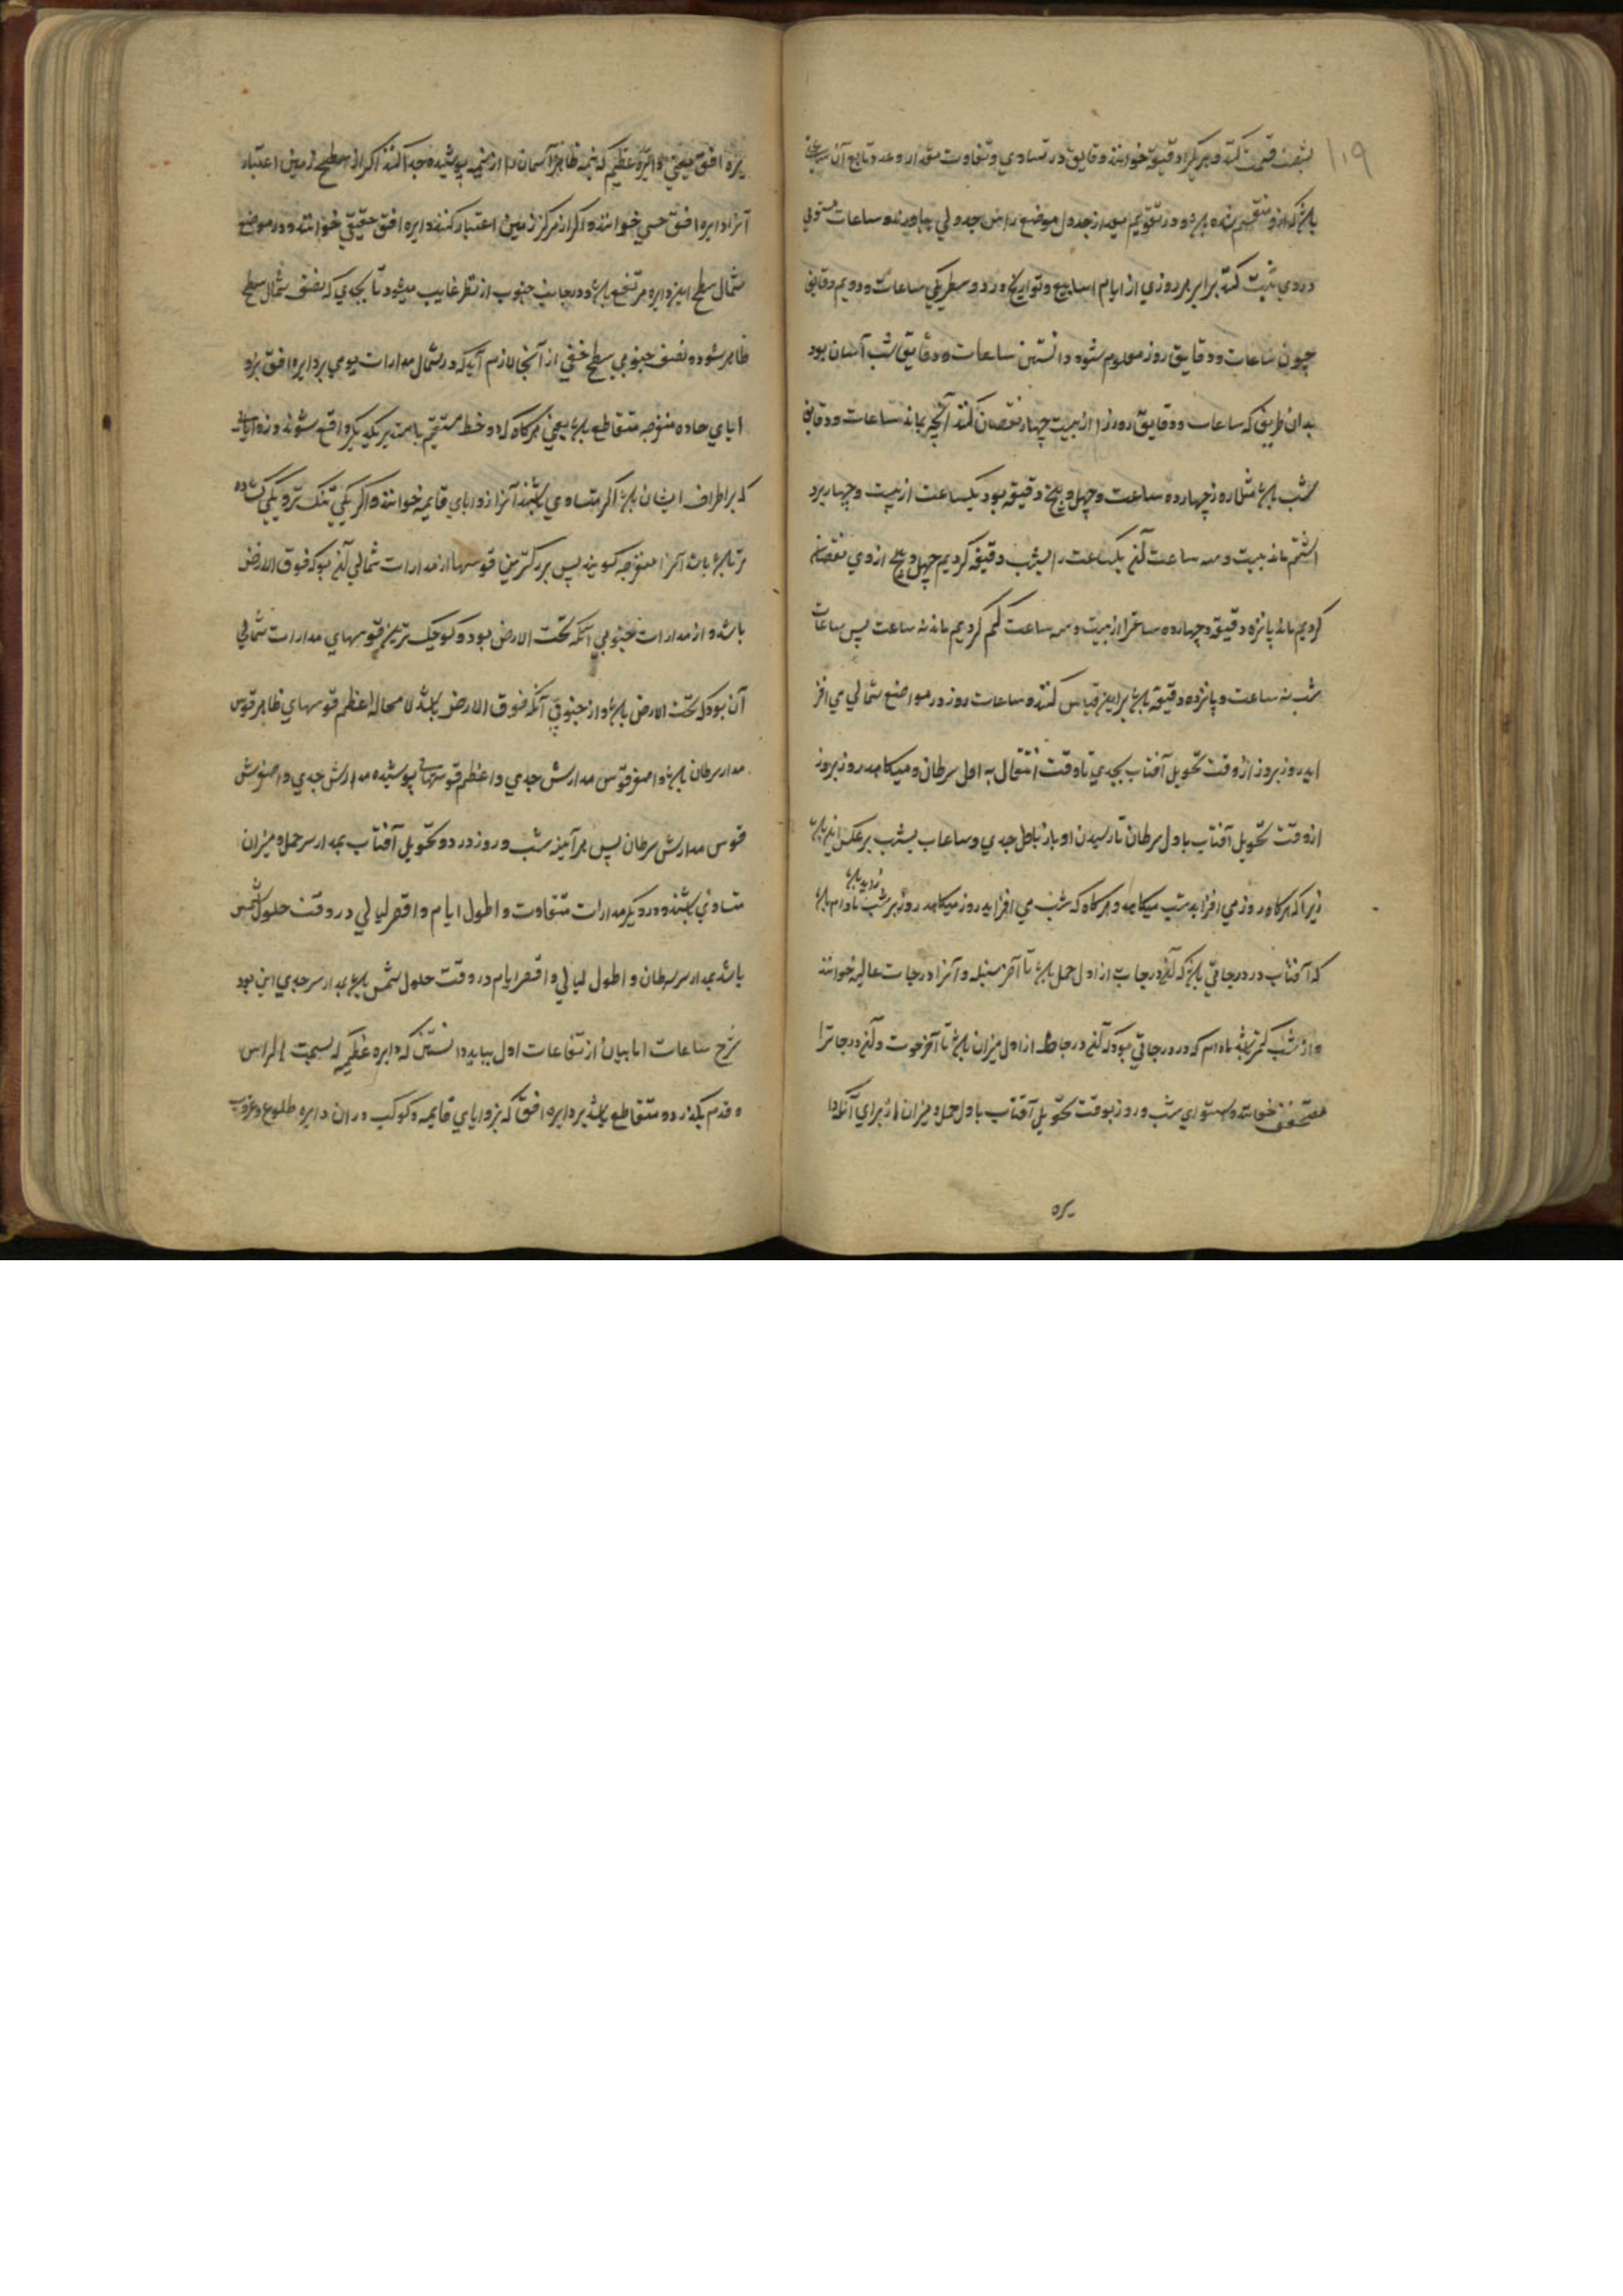 ۱۱۹
بشصت قسمت کنند و هر یکرا دقیقه خوانند و دقایق در تساوی و تفاوت مقدار و عدد تابع آن ساعت
باشد که ازو منقسم شده باشد و در تقویم بعد از جدول موضع راس جدولی بیاورند و ساعات مستوی
دروی ثبت کنند برابر هر روزی از ایام اسابیع و تواریخ در دو سطر یکی ساعات و دویم دقایق
چون ساعات و دقایق روز معلوم شود دانستن ساعات و دقایق شب آسان بود
بدان طریق که ساعات و دقایق روز را از بیست چهار نقصان کنند آنچه بماند ساعات و دقایق
شب باشد مثلا روز چهارده ساعت و چهل و پنج دقیقه بود یکساعت از بیست و چهار برد
اشتم ماند بیست و سه ساعت آن یکساعت را بشصت دقیقه کردیم چهل و پنج ازوی نقصان
کردیم ماند پانزده دقیقه و چهارده ساعترا از بیست و سه ساعت کم کردیم ماند نه ساعت پس ساعات
شب نه ساعت و پانزده دقیقه باشد برین قیاس کنند و ساعات روز در مواضع شمالی می افز
اید روز بروز از وقت تحویل آفتاب بجدی تا وقت انتقال به اول سرطان و میکاهد روز بروز
از وقت تحویل آفتاب باول سرطان تا رسیدن او باز باول جدی و ساعات شب بر عکس این باشد
زیرا که هرکاه روز می افزاید شب میکاهد و هرکاه که شب می افزاید روز میکاهد روز بر شب زاید باشد مادام باشد
که آفتاب در درجاتی باشد که آن درجات از اول حمل باشد تا آخر سنبله و آنرا درجات عالیه خوانند
و از شب کمتر باشد مادام که در درجاتی بود که آن درجات از اول میزان باشد تا آخر حوت و آن درجاترا
منخفض خوانند و استوای شب و روز بوقت تحویل آفتاب باول حمل و میزان از برای آنکه دا
یره
یره افق یعنی دایره عظیم که نیمه ظاهر آسمان را از نیمه پوشیده جدا کند اکر از سطح زمین اعتبار
آنرا دایره افق حسی خوانند و اکر از مرکز زمین اعتبار کنند دایره افق حقیقی خوانند و در موضع
شمال سطح این دایره مرتفع باشد و در جانب جنوب از نظر غایب میشود تا بحدی که نصف شمال سطح
ظاهر شود و نصف جنوبی سطح خفی از آنجا لازم آید که در شمال مدارات یومی بر دایره افق بزو
ایای حاده منفرجه متقاطع باشد یعنی هرکاه که دو خط مستقیم یا مستدیر بر یکدیکر واقع شوند و زوایای
که بر اطراف ایشان باشد اکر متساوی باشند آنرا زوایای قایمه خوانند و اکر یکی تنک تر و یکی کشاده
تر باشد آنرا منفرجه کویند پس بزرکترین قوسها از مدارات شمالی آن بود که فوق الارض
باشد و از مدارات جنوبی آنکه تحت الارض بود و کوچک ترین قوسهای مدارات شمالی
آن بود که تحت الارض باشد و از جنوبی آنکه فوق الارض باشد لا محاله اعظم قوسهای ظاهر قوس
مدار سرطان باشد و اصغر قوس مدارش جدی و اعظم قوسهای پوشیده مدارش جدی و اصغرش
قوس مدارش سرطان پس هر آینه شب و روز در دو تحویل آفتاب بمدار سر حمل و میزان
متساوی باشند و در دیکر مدارات متفاوت و اطول ایام و اقصر لیالی در وقت حلول شمس
باشد بمدار سر سرطان و اطول لیالی و اقصر ایام در وقت حلول شمس باشد بمدار سر جدی این بود
شرح ساعات اما بیان ارتفاعات اول بباید دانستن که دایره عظیمه که بسمت الراس
و قدم بکذرد و متقاطع باشد بر دایره افق که بزوایای قایمه و کوکب در ان دایره طلوع و غروب